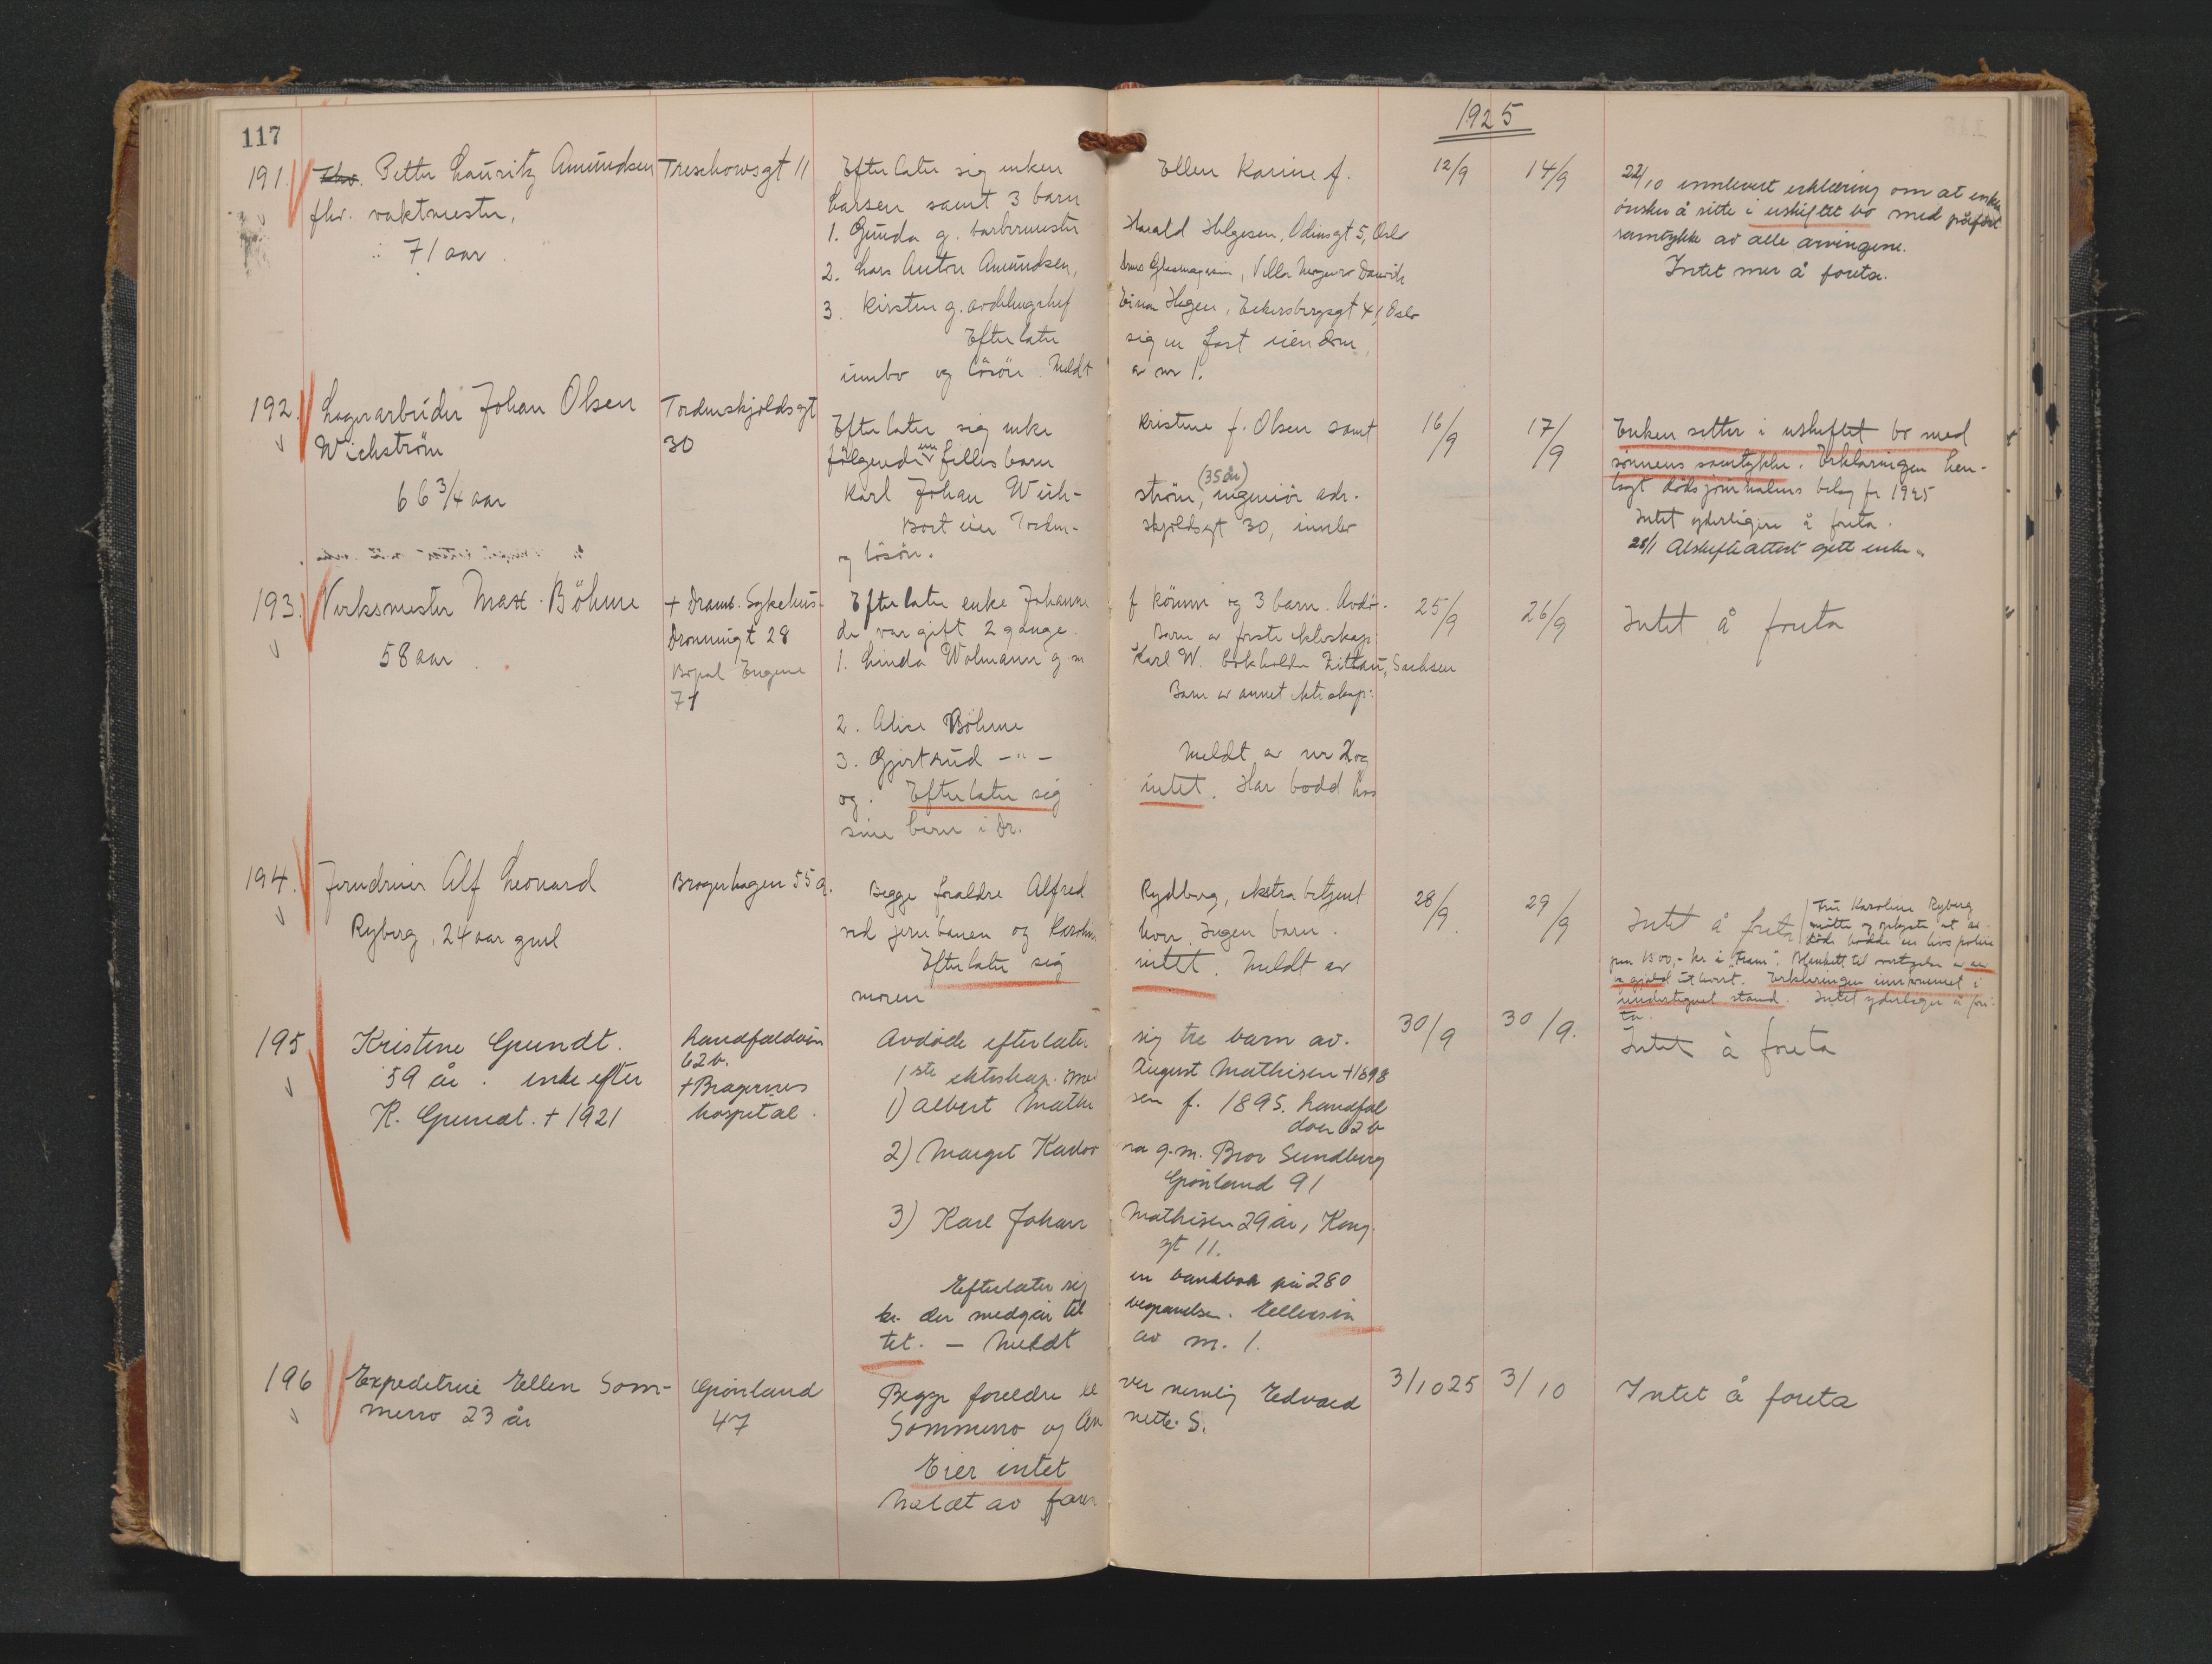 1925
117
191. Petter Lauritz Amundsen Treschowsgt 11 Efterlater sig enken Ellen Karine f. 12/9 14/9 22/10 innlevert erklæring om at enken
fhv. vaktmester, Larsen samt 3 barn ønsker å sitte i uskiftet bo med påført
71 aar 1. Gunda g. barbermester Harald Helgesen, Odinsgt 5, Oslo samtykke av alle arvingene.
2. Lars Anton Amundsen, Drms Glassmagasin, Villa Danvik Intet mer å foreta.
3. Kirsten g. avdelingschef Einar Hagen, Eckersbergsgt 41, Oslo
Efterlater sig en fast eiendom
innbo og løsøre. Meldt av nr 1.
192. Lagerarbeider Johan Olsen Tordenskjoldsgt Efterlater sig enke Kristine f. Olsen samt 16/9 17/9 Enken sitter i uskiftet bo med
Wichstrøm 30 følgende felles barn sønnens samtykke. Erklæringen hen-
66 3/4 aar Karl Johan Wich- strøm, (35 år) ingeniør adr. lagt dødsjournalens bilag for 1925
Bort eier Torden- skjoldsgt 30, innbo Intet yderligere å foreta.
og løsøre. 28/1 Uskifteattest gitt enken
193. Verksmester Max Böhme + Dramm. Sykehus- Efterlater enke Johanne f Könne og 3 barn. Avdø- 25/9 26/9 Intet å foreta
58 aar Dronningt 28 de var gift 2 gange. Barn av første ekteskap:
Bopal Engene 1. Linda Wolmann g. m Karl W. bokholder Zittau, Sachsen
71 Barn av annet ekteskap:
2. Alice Böhme
3. Gjertrud -"- Meldt av nr 2 og
og. Efterlater sig intet. Har bodd hos
sine barn i Dr.
194. Jerndreier Alf Leonard Bragerhagen 55 a. Begge foreldre Alfred Rydberg, ekstrabetjent 28/9 29/9 Intet å foreta / Fru Karoline Ryberg
Ryberg, 24 aar gml ved jernbanen og Karoline hvor. Ingen barn. møtte og oplyste at av-
Efterlater sig intet. Meldt av døde hadde en livspolise
moren paa 1500,- kr i "Fram". Blankett til vedtagelse av arv
og gjeld utlevert. Erklæringen innkommet i
undertegnet stand. Intet yderligere å fore-
ta.
195 Kristine Grundt. Landfaldøien Avdøde efterlater sig tre barn av. 30/9 30/9. Intet å foreta
59 år. enke efter 62 b. 1ste ekteskap. med August Mathisen + 1898
K. Grundt. + 1921 + Bragernes 1) Albert Mathi sen f. 1895. Landfal
hospital. døen 62 b
2) Margit Kador ra g. m. Bror Sundberg
Grønland 91
3) Karl Johan Mathisen 29 år, Kong.
gt 11.
Efterlater sig en bankbok på 280
kr. der medgår til begravelsen. Ellers in
tet. - Meldt av nr. 1.
196 Expeditrice Ellen Som- Grønland Begge foreldre le ver nemlig Edvard 3/10 25 3/10 Intet å foreta
merro 23 år 47 Sommerro og An nette S.
Eier intet
Meldt av faren